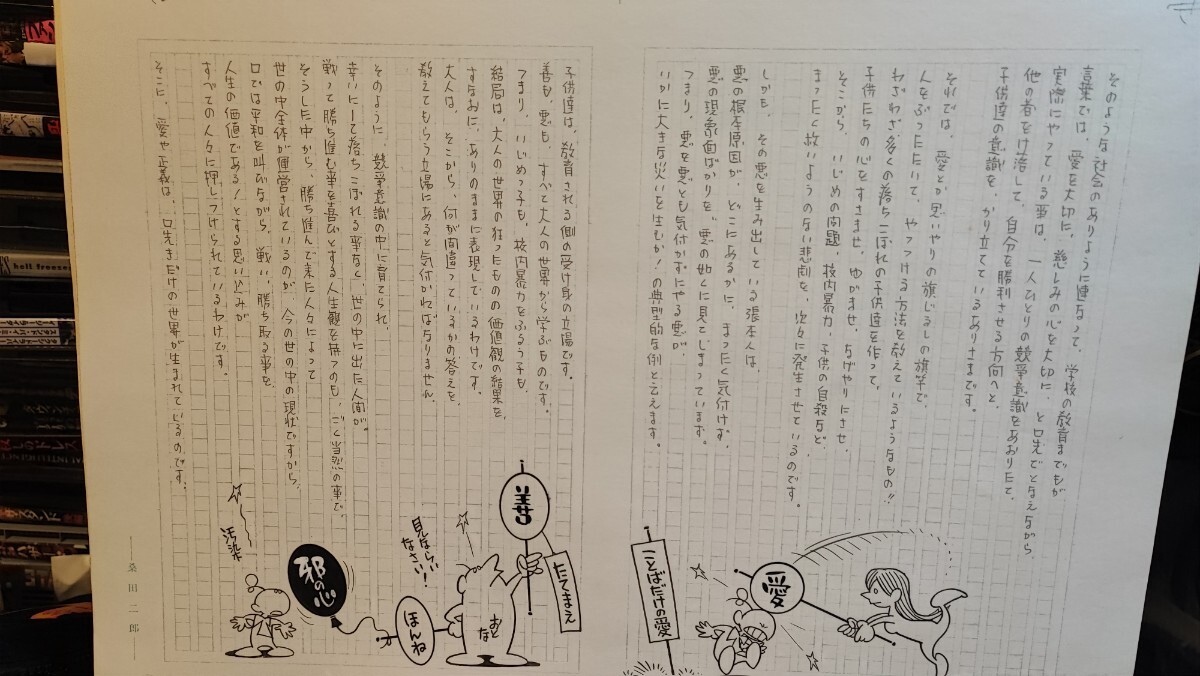 そのような社会のありように連なって、学校の教育までもが
言葉では、愛を大切に、慈しみの心を大切に、と口先でとなえながら、
実際にやっている事は、一人ひとりの競争意識をあおりたて、
他の者をけ落して、自分を勝利させる方向へと、
子供達の意識を、かり立てているありさまです。
それでは、愛とか思いやりの旗じるしの旗竿で、
人をぶったたいて、やっつける方法を教えているようなもの!!
わざわざ多くの落ちこぼれの子供達を作って、
子供たちの心をすさませ、ゆがませ、なげやりにさせ、
そこから、いじめの問題、校内暴力、子供の自殺など、
まったく救いようのない悲劇を、次々に発生させているのです。
しかも、その悪を生み出している張本人は、
悪の根本原因が、どこにあるかに、まったく気付けず、
悪の現象面ばかりを、悪の如くに見てしまっています。
つまり、悪を悪とも気付かずにやる悪が、
いかに大きな災いを生むか!の典型的な例と言えます。
ことばだけの愛
愛
子供達は、教育される側の受け身の立場です。
善も、悪も、すべて大人の世界から学ぶものです。
つまり、いじめっ子も、校内暴力をふるう子も、
結局は、大人の世界の狂ったものの価値観の結果を、
すなおに、ありのままに表現しているわけです。
大人は、そこから、何が間違っているかの答えを、
教えてもらう立場にあると気付かねばなりません。
そのように、競争意識の中に育てられ、
幸いにして落ちこぼれる事なく、世の中に出た人間が、
戦って勝ち進む事を喜びとする人生観を持つのも、ごく当然の事で、
そうした中から、勝ち進んで来た人々によって
世の中全体が運営されているのが、今の世の中の現状ですから、
口では平和を叫びながら、戦い、勝ち取る事を、
人生の価値である!とする思い込みが、
すべての人々に押しつけられているわけです。
そこに、愛や正義は、口先きだけの世界が生まれているのです。
善
たてまえ
おとな
見ならいなさい!
ほんね
邪の心
汚染
桑田二郎